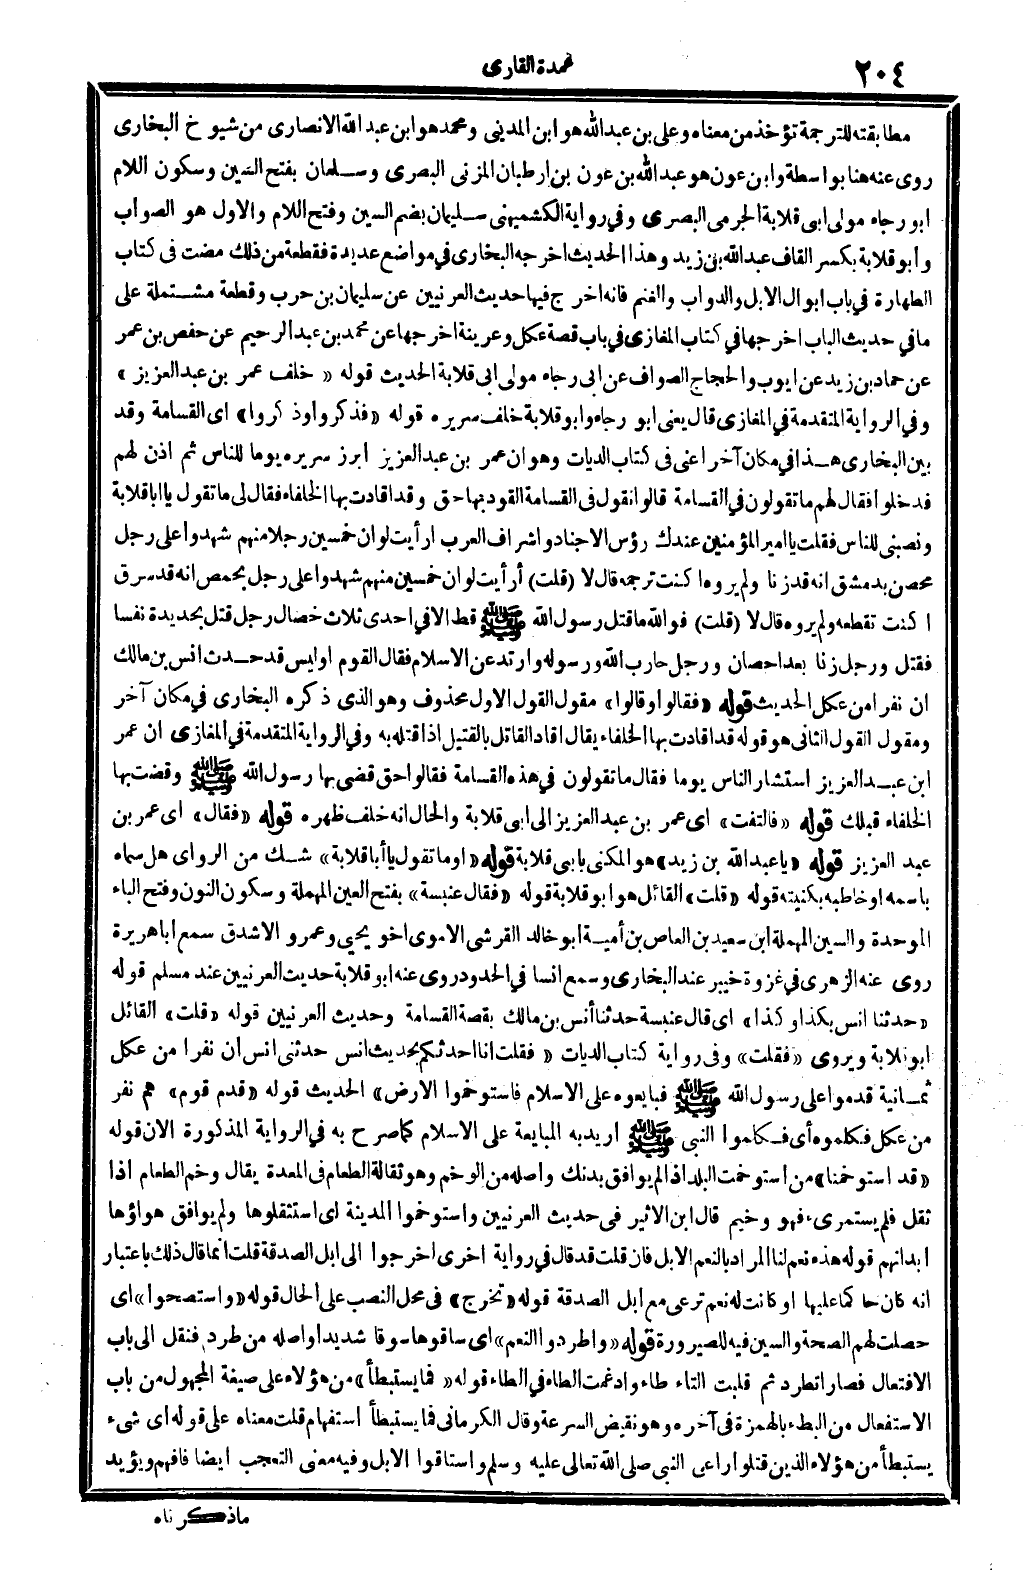 ٢٠٤
عمدة القارى
مطابقته للترجمة تؤخذ من معناه وعلى بن عبدالله هو ابن المدينى ومحمد هو ابن عبدالله الانصارى من شيوخ البخارى
روى عنه هنا بواسطة وابن عون هو عبدالله بن عون بن ارطبان المزنى البصرى وسلمان بفتح السين وسكون اللام
ابو رجاء مولى ابى قلابة الجرمى البصرى وفي رواية الكشميهنى سليمان بضم السين وفتح اللام والاول هو الصواب
وأبو قلابة بكسر القاف عبدالله بن زيد وهذا الحديث اخرجه البخارى في مواضع عديدة فقطعة من ذلك مضت فى كتاب
الطهارة في باب ابوال الابل والدواب والغنم فانه اخرج فيها حديث العرنيين عن سليمان بن حرب وقطعة مشتملة على
ما في حديث الباب اخرجها في كتاب المغازى في باب قصة عكل وعرينة اخرجها عن محمد بن عبد الرحيم عن حفص بن عمر
عن حماد بن زيد عن ايوب والحجاج الصواف عن ابى رجاء مولى ابى قلابة الحديث قوله « خلف عمر بن عبد العزيز »
وفي الرواية المتقدمة في المغازى قال يعنى ابو رجاء وابو قلابة خلف سريره قوله «فذكروا وذكروا» اى القسامة وقد
بين البخارى هذا في مكان آخر اعنى فى كتاب الديات وهو ان عمر بن عبدالعزيز ابرز سريره يوما للناس ثم اذن لهم
فدخلوا فقال لهم ما تقولون في القسامة قالوا نقول فى القسامة القود بها حق وقد اقادت بها الخلفاء فقال لى ما تقول يا ابا قلابة
ونصبنى للناس فقلت يا امير المؤمنين عندك رؤس الاجناد واشراف العرب ارأيت لو ان خمسين رجلا منهم شهدوا على رجل
محصن بدمشق انه قد زنا ولم يروه اكنت ترجمه قال لا (قلت) أرأيت لو ان خمسين منهم شهدوا على رجل بحمص انه قد سرق
اكنت تقطعه ولم يروه قال لا (قلت) فوالله ما قتل رسول الله ﷺ قط الا في احدى ثلاث خصال رجل قتل بحديدة نفسا
فقتل ورجل زنا بعد احصان ورجل حارب الله ورسوله وارتد عن الاسلام فقال القوم اوليس قد حدث انس بن مالك
ان نفرا من عكل الحديث قوله «فقالوا وقالوا» مقول القول الاول محذوف وهو الذى ذكره البخارى في مكان آخر
ومقول القول الثانى هو قوله قد اقادت بها الخلفاء يقال اقاد القاتل بالقتيل اذا قتله به وفي الرواية المتقدمة في المغازى ان عمر
ابن عبد العزيز استشار الناس يوما فقال ما تقولون في هذه القسامة فقالوا حق قضى بها رسول الله ﷺ وقضت بها
الخلفاء قبلك قوله «فالتفت» اى عمر بن عبد العزيز الى ابى قلابة والحال انه خلف ظهره قوله «فقال» اى عمر بن
عبد العزيز قوله «يا عبدالله بن زيد» هو المكنى بابى قلابة قوله «او ما تقول يا أبا قلابة» شك من الرواى هل سماه
باسمه او خاطبه بكنيته قوله «قلت» القائل هو ابو قلابة قوله «فقال عنبسة» بفتح العين المهملة وسكون النون وفتح الباء
الموحدة والسين المهملة ابن سعيد بن العاص بن أمية ابو خالد القرشى الاموى اخو يحيى وعمرو الاشدق سمع ابا هريرة
روى عنه الزهرى في غزوة خيبر عند البخارى وسمع انسا في الحدود روى عنه ابو قلابة حديث العرنيين عند مسلم قوله
«حدثنا انس بكذا وكذا» اى قال عنبسة حدثنا أنس بن مالك بقصة القسامة وحديث العرنيين قوله «قلت» القائل
ابو قلابة ويروى «فقلت» وفى رواية كتاب الديات « فقلت انا احدثكم بحديث انس حدثنى انس ان نفرا من عكل
ثمانية قدموا على رسول الله ﷺ فبايعوه على الاسلام فاستوخموا الارض» الحديث قوله «قدم قوم» هم نفر
من عكل فكلموه أى فكلموا النبى ﷺ اريد به المبايعة على الاسلام كما صرح به في الرواية المذكورة الان قوله
«قد استوخمنا» من استوخمت البلد اذا لم يوافق بدنك واصله من الوخم وهو ثقالة الطعام فى المعدة يقال وخم الطعام اذا
ثقل فلم يستمرىء فهو وخيم قال ابن الاثير فى حديث العرنيين واستوخموا المدينة اى استثقلوها ولم يوافق هواؤها
ابدانهم قوله هذه نعم لنا المراد بالنعم الابل فان قلت قد قال في رواية اخرى اخرجوا الى ابل الصدقة قلت انما قال ذلك باعتبار
انه كان حاكما عليها او كانت له نعم ترعى مع ابل الصدقة قوله «تخرج» فى محل النصب على الحال قوله «واستصحوا» اى
حصلت لهم الصحة والسين فيه للصيرورة قوله «واطردوا النعم» اى ساقوها سوقا شديدا واصله من طرد فنقل الى باب
الافتعال فصار اتطرد ثم قلبت التاء طاء وادغمت الطاء في الطاء قوله «فما يستبطأ» من هؤلاء على صيغة المجهول من باب
الاستفعال من البطء بالهمزة في آخره وهو نقيض السرعة وقال الكرمانى فما يستبطأ استفهام قلت معناه على قوله اى شىء
يستبطأ من هؤلاء الذين قتلوا راعى النبى صلى الله تعالى عليه وسلم واستاقوا الابل وفيه معنى التعجب ايضا فافهم ويؤيد
ماذكرناه